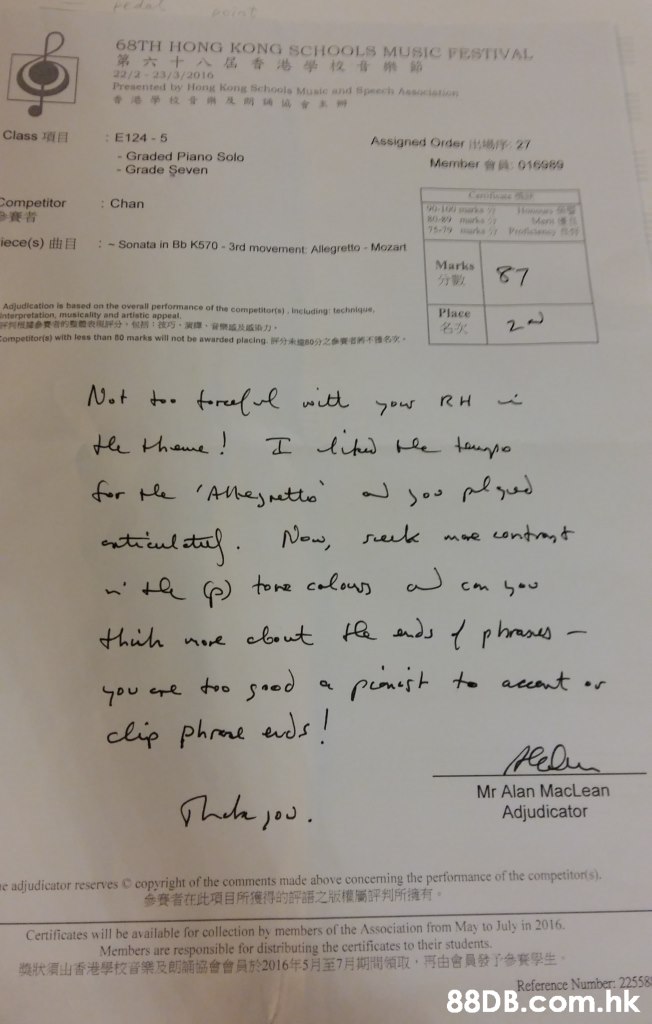 pedal point
68TH HONG KONG SCHOOLS MUSIC FESTIVAL
第六十八屆香港學校音樂節
22/2 - 23/3/2016
Presented by Hong Kong Schools Music and Speech Association
香港學校音樂及朗誦協會主辦
Class 項目 : E124 - 5
- Graded Piano Solo
- Grade Seven
Assigned Order 出場序: 27
Member 會員: 016989
Competitor : Chan
參賽者
iece(s) 曲目 : ~ Sonata in Bb K570 - 3rd movement: Allegretto - Mozart
Certificate
90-100 marks 分 Honours 榮譽
80-89 marks 分 Merit 優良
75-79 marks 分 Proficiency 良好
Marks 87
分數
Place 2nd
名次
Adjudication is based on the overall performance of the competitor(s), including: technique,
interpretation, musicality and artistic appeal.
評判根據參賽者的整體表現評分，包括：技巧、演繹、音樂感及感染力。
Competitor(s) with less than 80 marks will not be awarded placing. 評分未達80分之參賽者將不獲名次。
Not too forceful with your RH in
the theme! I liked the tempo
for the 'Allegretto' and you played
articulately. Now, seek more contrast
in the (p) tone colours and can you
think more about the ends of phrases –
you are too good a pianist to accent or
clip phrase ends!
Thank you.
Mr Alan MacLean
Adjudicator
e adjudicator reserves © copyright of the comments made above concerning the performance of the competitor(s).
參賽者在此項目所獲得的評語之版權屬評判所擁有。
Certificates will be available for collection by members of the Association from May to July in 2016.
Members are responsible for distributing the certificates to their students.
獎狀須由香港學校音樂及朗誦協會會員於2016年5月至7月期間領取，再由會員發予參賽學生。
Reference Number: 22558
88DB.com.hk